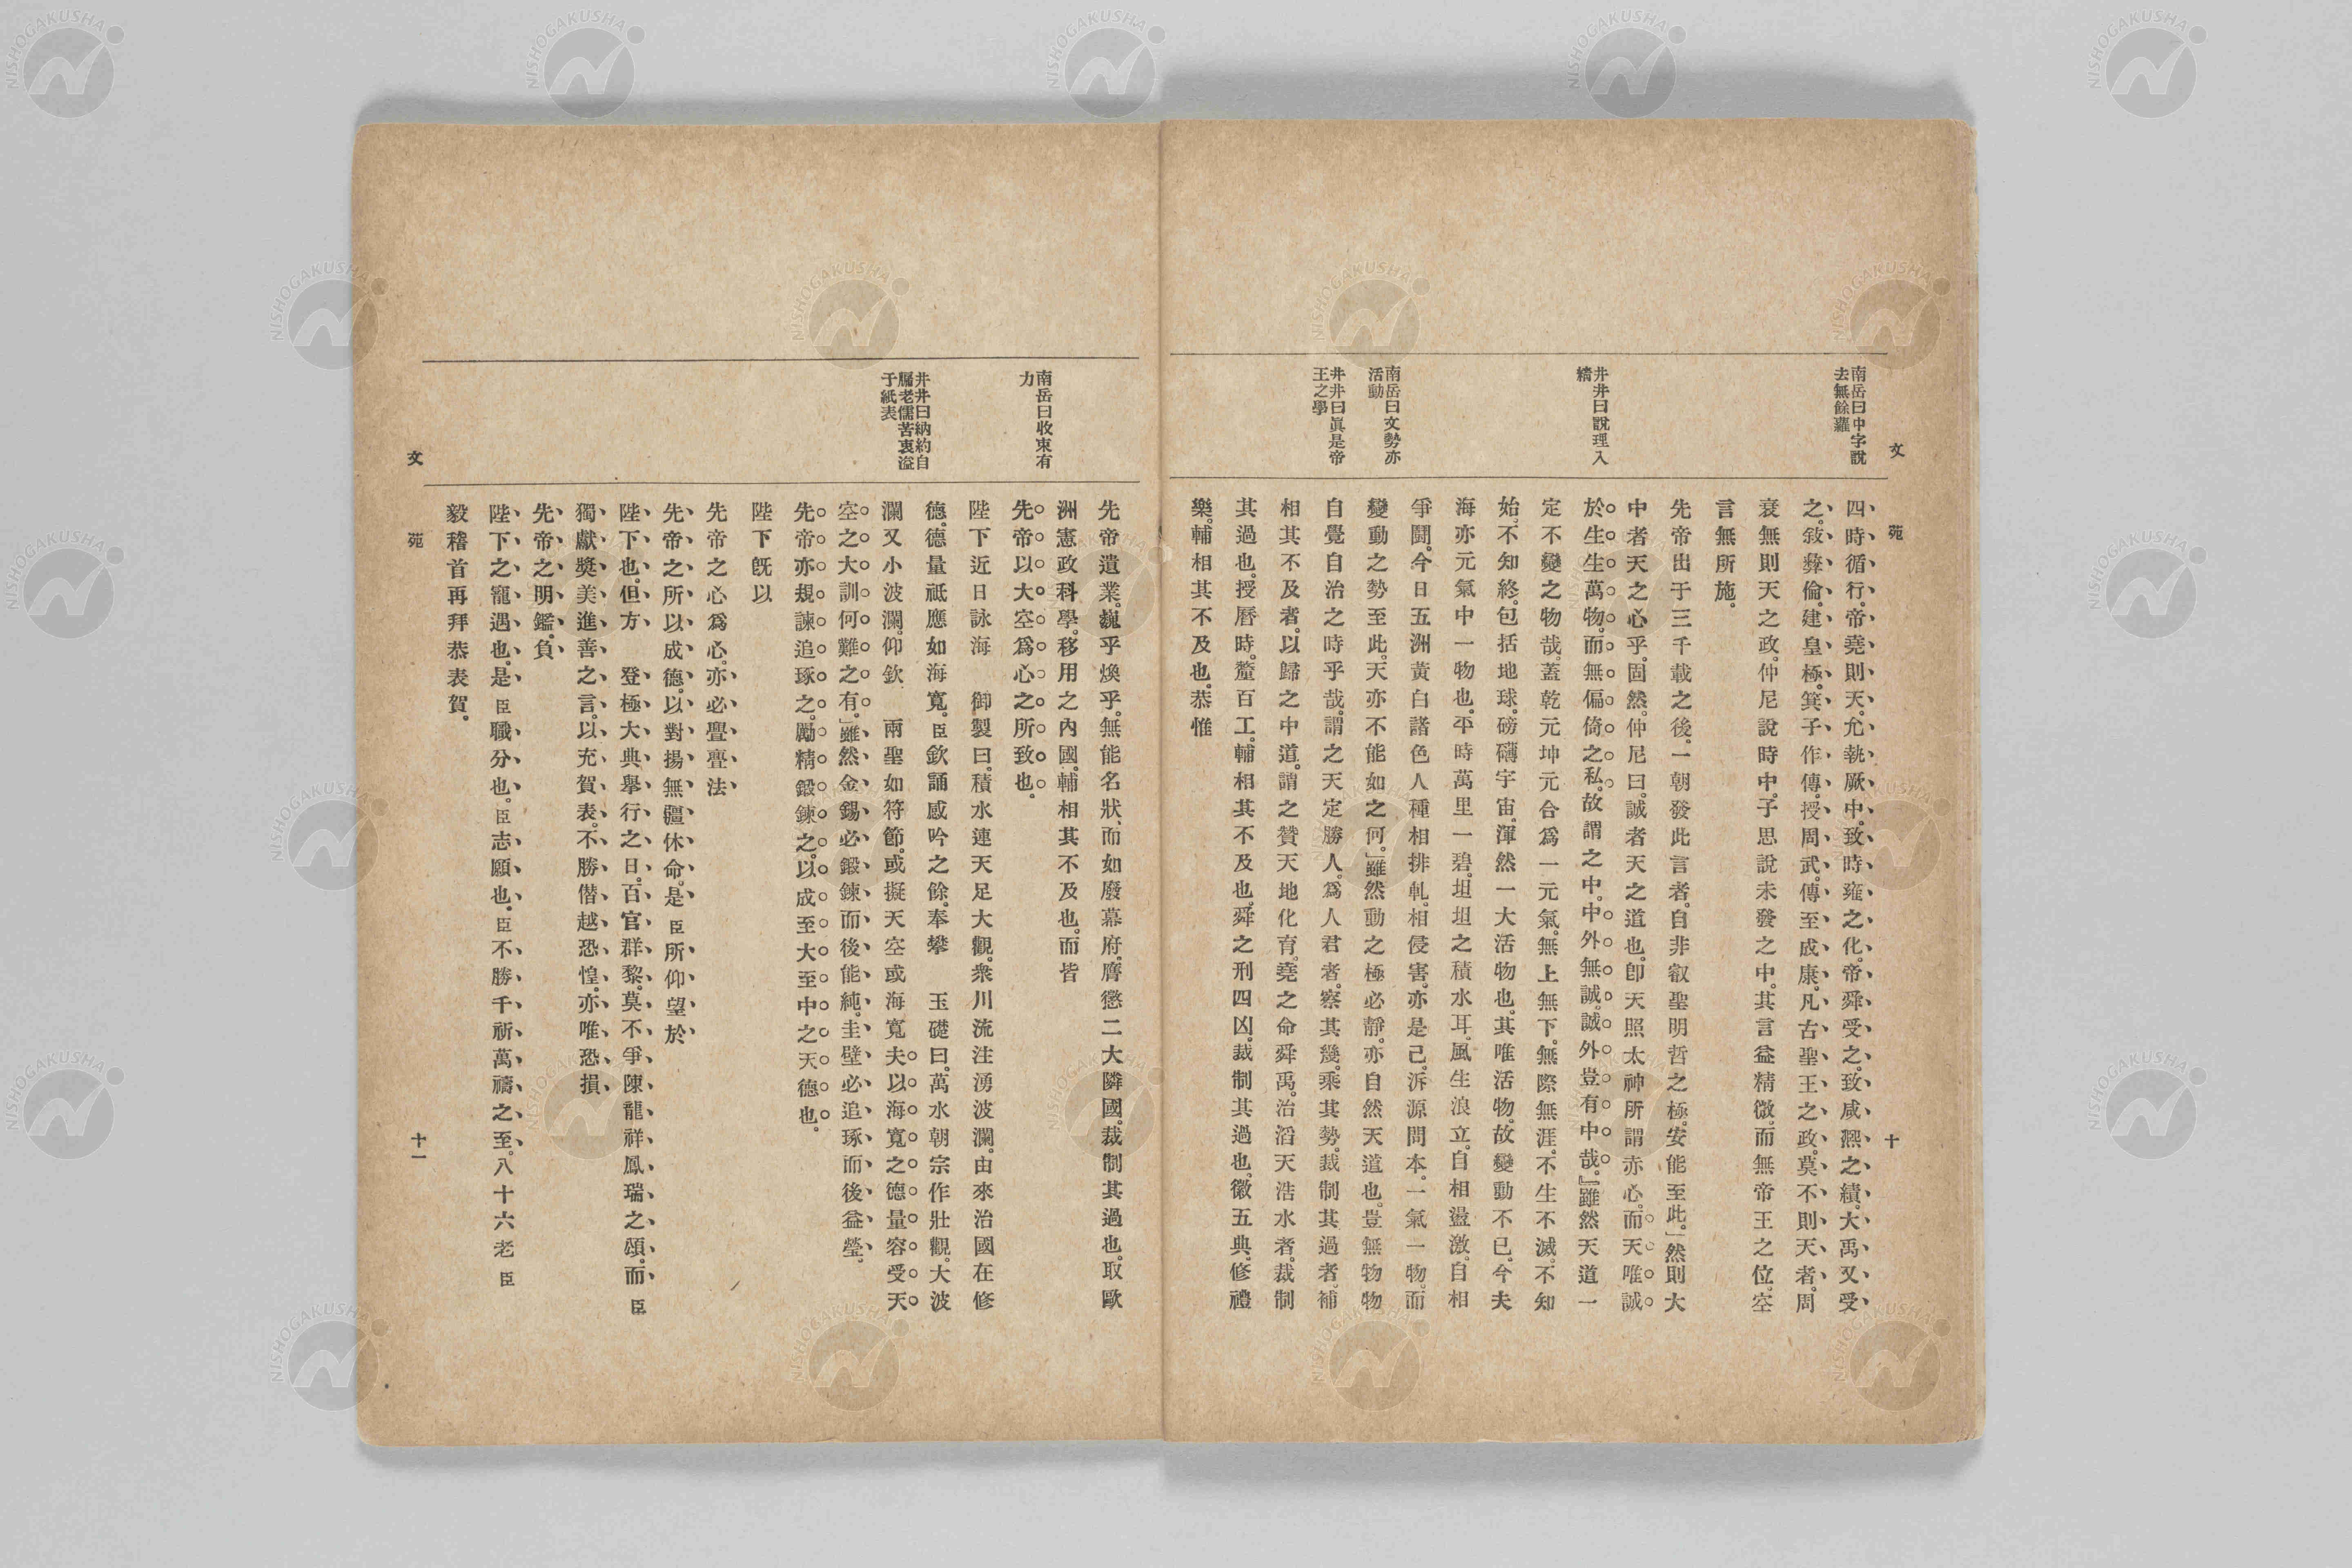 文苑
十
南岳曰中字說
去無餘蘊
井井曰說理入
精
南岳曰文勢亦
活動
井井曰眞是帝
王之學
四時循行。帝堯則天。允執厥中。致時雍之化。帝舜受之。致咸凞之績。大禹又受
之。敍彝倫。建皇極。箕子作傳。授周武。傳至成康。凡古聖王之政。莫不則天者。周
衰無則天之政。仲尼說時中。子思說未發之中。其言益精微。而無帝王之位。空
言無所施。
先帝出于三千載之後。一朝發此言者。自非叡聖明哲之極。安能至此。」然則大
中者天之心乎。固然。仲尼曰。誠者天之道也。卽天照太神所謂赤心。而天唯誠
於生生萬物。而無偏倚之私。故謂之中。中外無誠。誠外豈有中哉。』雖然天道一
定不變之物哉。蓋乾元坤元合爲一元氣。無上無下。無際無涯。不生不滅。不知
始。不知終。包括地球。磅礴宇宙。渾然一大活物也。其唯活物。故變動不已。今夫
海亦元氣中一物也。平時萬里一碧。坦坦之積水耳。風生浪立。自相盪激。自相
爭鬪。今日五洲黃白諸色人種相排軋。相侵害。亦是已。泝源問本。一氣一物。而
變動之勢至此。天亦不能如之何。』雖然動之極必靜。亦自然天道也。豈無物物
自覺自治之時乎哉。謂之天定勝人。爲人君者。察其幾。乘其勢。裁制其過者。補
相其不及者。以歸之中道。謂之贊天地化育。堯之命舜禹。治滔天浩水者。裁制
其過也。授曆時。釐百工。輔相其不及也。舜之刑四凶。裁制其過也。徽五典。修禮
樂。輔相其不及也。恭惟
南岳曰收束有
力
井井曰納約自
牖老儒苦衷溢
于紙表
先帝遺業。巍乎煥乎。無能名狀。而如廢幕府。膺懲二大隣國。裁制其過也。取歐
洲憲政科學。移用之內國。輔相其不及也。而皆
先帝以大空爲心之所致也。
陛下近日詠海 御製曰。積水連天足大觀。衆川流注湧波瀾。由來治國在修
德。德量祇應如海寬。臣欽誦感吟之餘。奉攀 玉礎曰。萬水朝宗作壯觀。大波
瀾又小波瀾。仰欽 兩聖如符節。或擬天空或海寬。夫以海寬之德量。容受天
空之大訓。何難之有。』雖然金錫必鍛鍊而後能純。圭璧必追琢而後益瑩。
先帝亦規諫追琢之。勵精鍛鍊之。以成至大至中之天德也。
陛下旣以
先帝之心爲心。亦必亹亹法
先帝之所以成德。以對揚無疆休命。是臣所仰望於
陛下也。但方 登極大典擧行之日。百官群黎。莫不爭陳龍祥鳳瑞之頌。而臣
獨獻奬美進善之言。以充賀表。不勝僭越恐惶。亦唯恐損
先帝之明鑑。負
陛下之寵遇也。是臣職分也。臣志願也。臣不勝千祈萬禱之至。八十六老臣
毅稽首再拜恭表賀。
文苑
十一